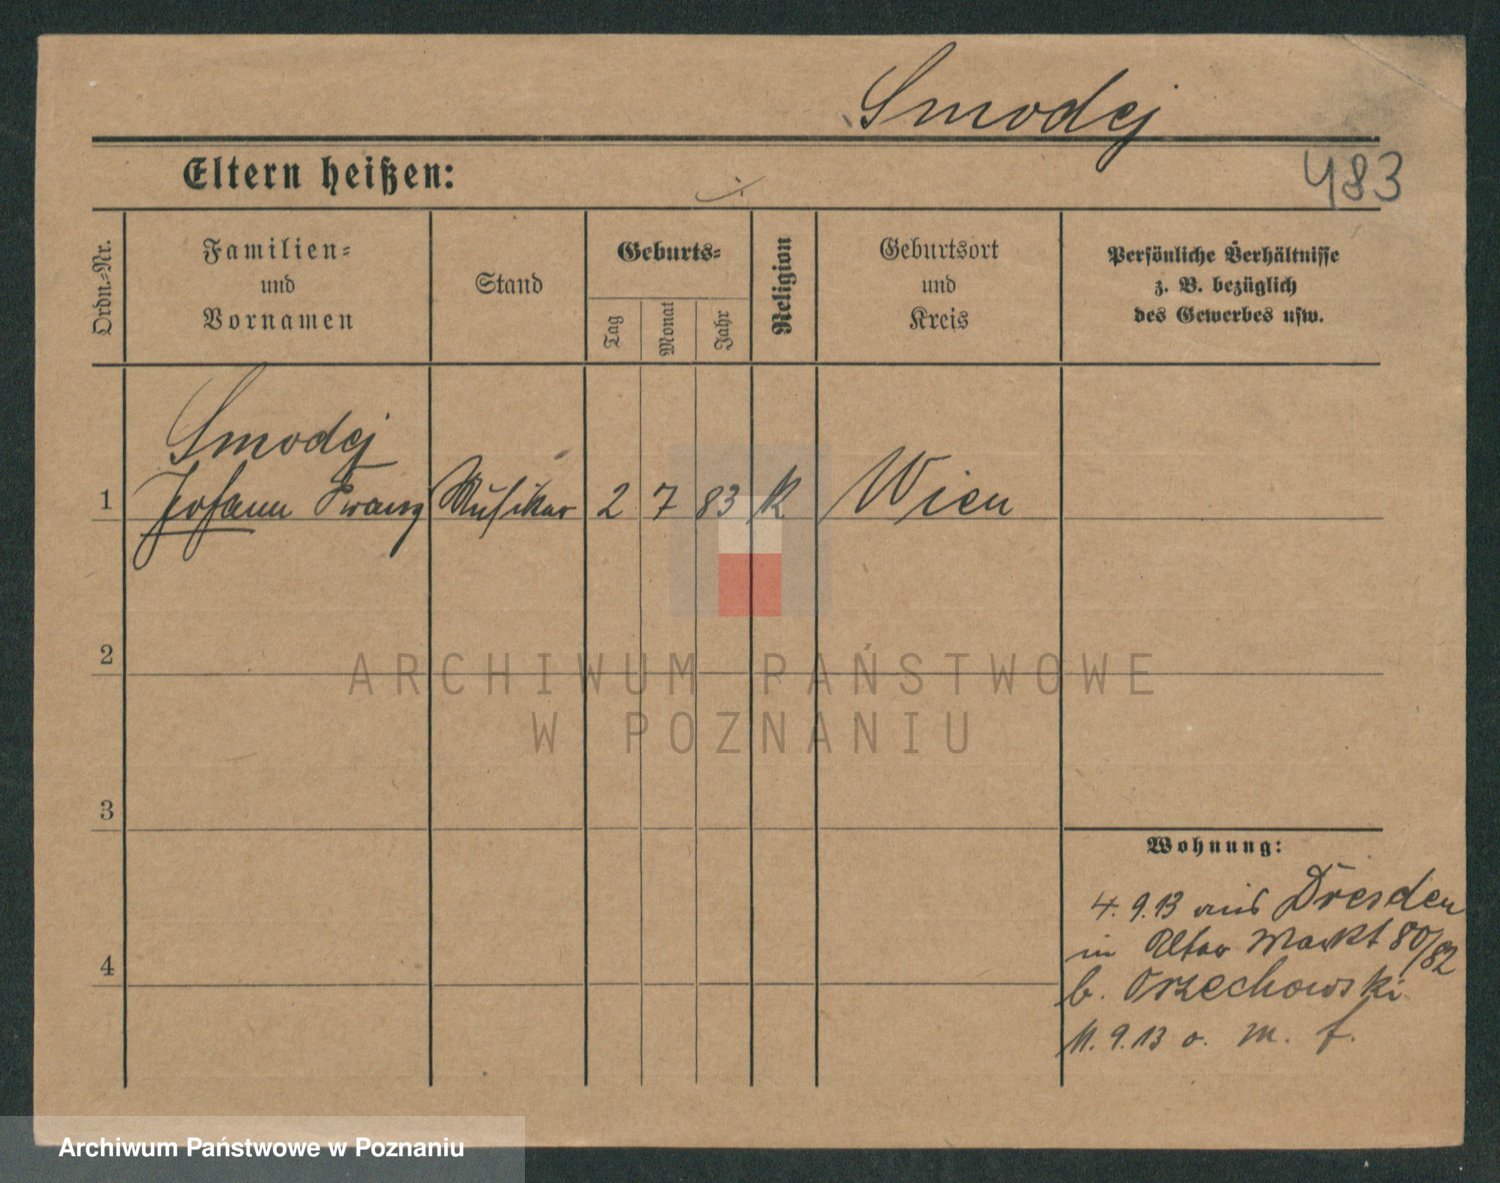 Smodej
483
Eltern heißen:
Ordn.-Nr.
Familien- und Vornamen
Stand
Geburts-
Tag
Monat
Jahr
Religion
Geburtsort und Kreis
Persönliche Verhältnisse z. B. bezüglich des Gewerbes usw.
Smodej
1 Johann Franz Musiker 2 7 83 K Wien
2
3
4
ARCHIWUM PAŃSTWOWE
W POZNANIU
Wohnung:
4. 9. 13 aus Dresden
in Alter Markt 80/82
b. Orzechowski
11. 9. 13 o. m. f.
Archiwum Państwowe w Poznaniu